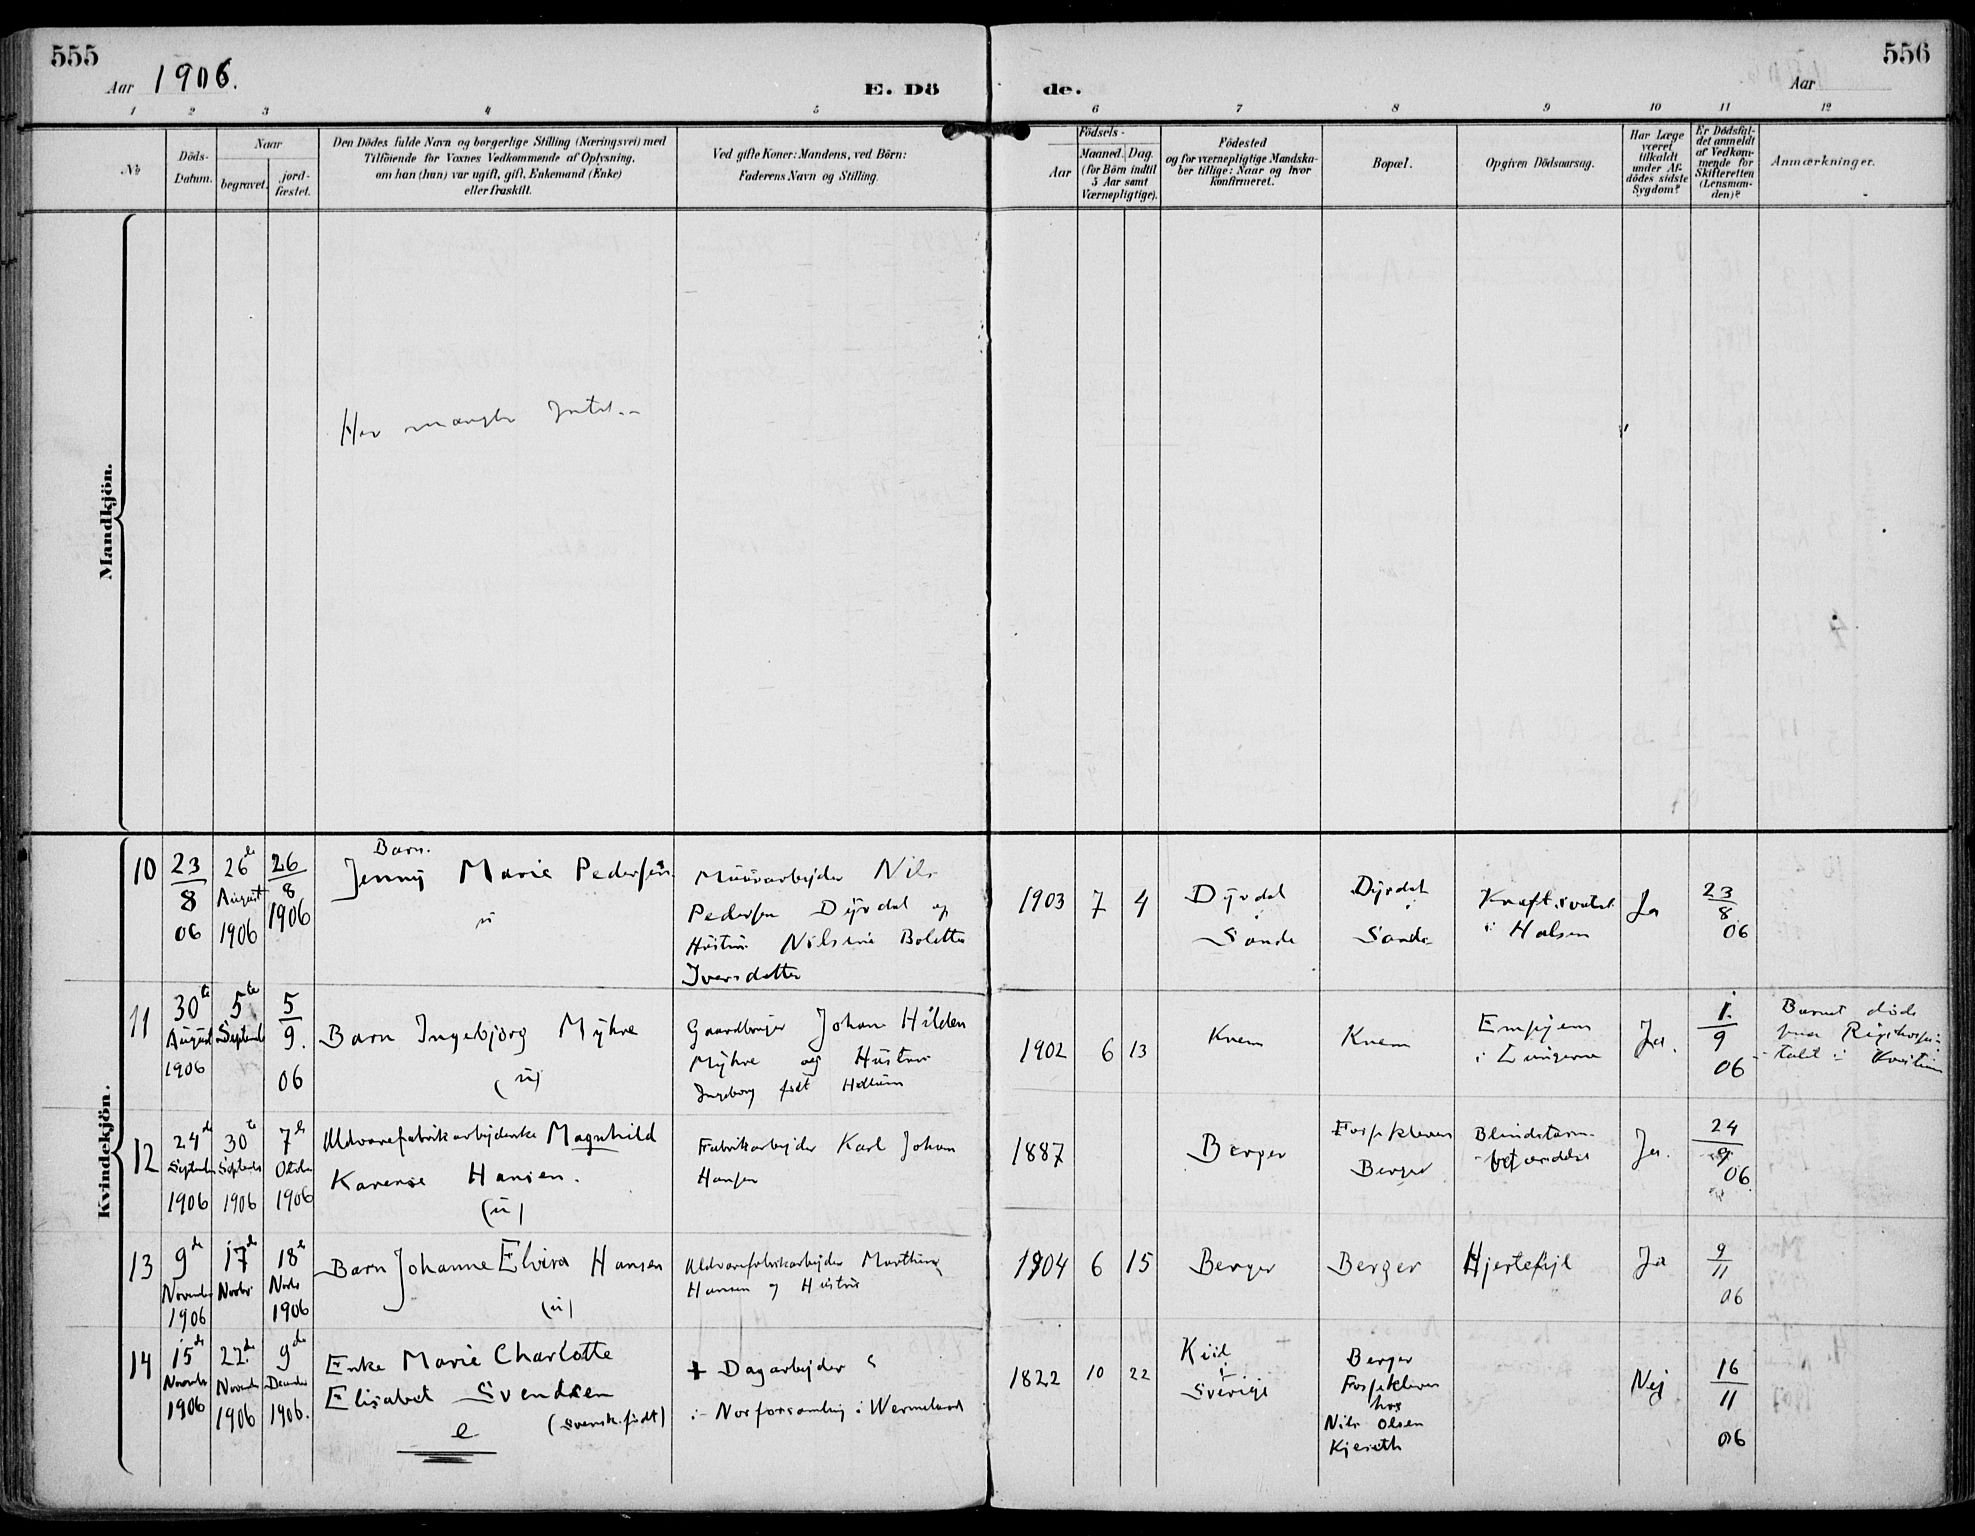 555
Aar 1906.
E. Dö
de.
556
Aar
1 2 3 4 5 6 7 8 9 10 11 12
No
Döds-
Datum.
Naar
begravet.
jord-
fæstet.
Den Dödes fulde Navn og borgerlige Stilling (Næringsvei) med
Tilföiende for Voxnes Vedkommende af Oplysning,
om han (hun) var ugift, gift, Enkemand (Enke)
eller fraskilt.
Ved gifte Koner: Mandens, ved Börn:
Faderens Navn og Stilling.
Födsels-
Aar
Maaned. Dag.
(for Börn indtil
5 Aar samt
Værnepligtige).
Födested
og for værnepligtige Mandska-
ber tillige: Naar og hvor
konfirmeret.
Bopæl.
Opgiven Dödsaarsag.
Har Læge
været
tilkaldt
under Af-
dödes sidste
Sygdom?
Er Dödsfal-
det anmeldt
af Vedkom-
mende for
Skifteretten
(Lensman-
den)?
Anmærkninger.
Mandkjön.
Her mangler
Kvindekjön.
10
23
8
06
26de
August
1906
26
8
1906
Barn.
Jenny Marie Pedersen
u
Murarbejder Nils
Pedersen Dyrdal og
Hustru Nilsine Bolette
Iversdatter
1903 7 4
Dyrdal
i
Sande
Dyrdal
i
Sande
i Halsen
Ja
23
8
06
11
30te
August
1906
5te
September
5
9.
06
Barn Ingebjorg Myhre
(u)
Gaardbruger Johan Hilden
Myhre og Hustru
Ingeborg födt
1902 6 13
Knem
Knem
Empyem
i Lungerne
Ja.
1.
9
06
Barnet döde
paa Rigshospi-
talet i Kristiania
12
24de
September
1906
30te
September
1906
7de
Oktober
1906
Uldvarefabrikarbejderske Magnhild
Karense Hansen.
(u)
Fabrikarbejder Karl Johan
Hansen
1887
Berger
Berger
Blindtarm-
betændelse
Ja.
24
9
06.
13
9de
November
1906
17de
Novbr.
18de
Novbr
1906
Barn Johanne Elvira Hansen
(u)
Uldvarefabrikarbejder Marthin
Hansen og Hustru
1904 6 15
Berger
Berger
Hjertefejl
Ja
9
11
06
14
15de
November
1906
22de
November
1906
9de
December
1906.
Enke Marie Charlotte
Elisabet Svendsen
(svensk födt)
e
+ Dagarbejder
i Norforsamling i Wermeland
1822 10 22
i
Sverige
Berger
hos
Nils Olsen
Nej
16
11
06